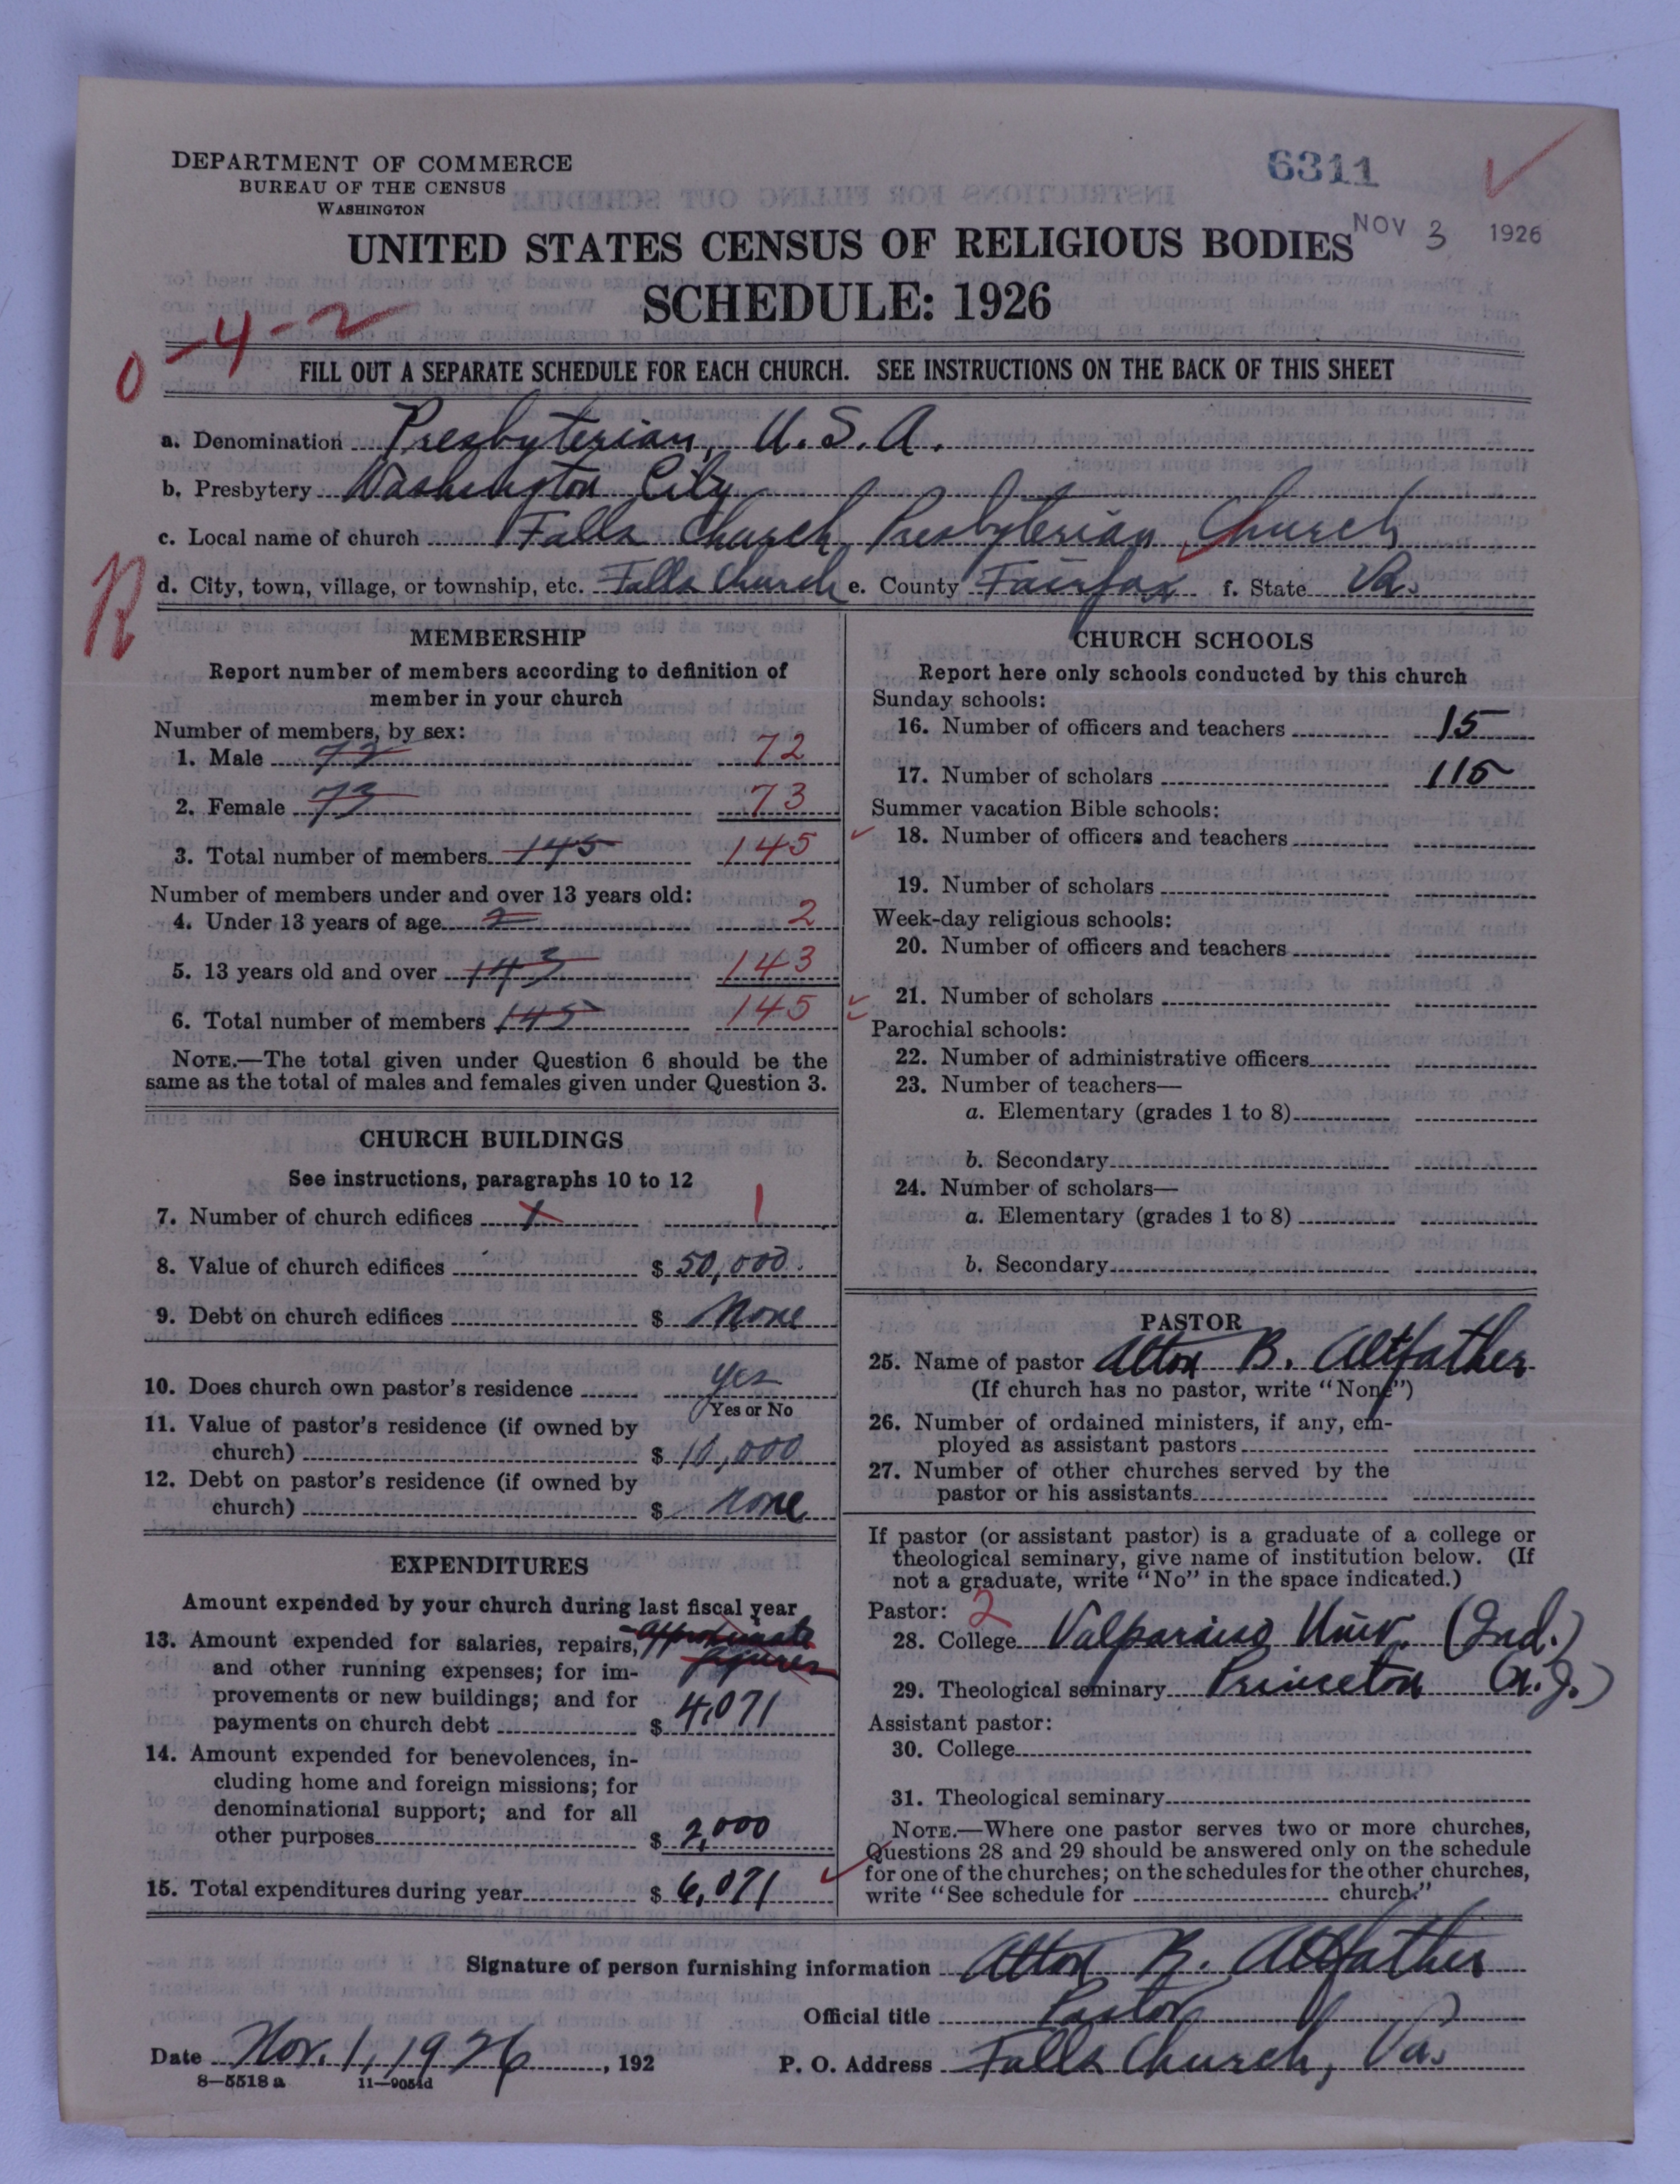 DEPARTMENT OF COMMERCE
BUREAU OF THE CENSUS
WASHINGTON
6311
NOV 3 1926
UNITED STATES CENSUS OF RELIGIOUS BODIES
SCHEDULE: 1926
0-4-2
FILL OUT A SEPARATE SCHEDULE FOR EACH CHURCH. SEE INSTRUCTIONS ON THE BACK OF THIS SHEET
a. Denomination Presbyterian, U.S.A.
b. Presbytery Washington City
c. Local name of church Falls Church Presbyterian Church
R
d. City, town, village, or township, etc. Falls Church e. County Fairfax f. State Va.
MEMBERSHIP
Report number of members according to definition of
member in your church
Number of members, by sex:
1. Male 72 72
2. Female 73 73
3. Total number of members 145 145
Number of members under and over 13 years old:
4. Under 13 years of age 2 2
5. 13 years old and over 143 143
6. Total number of members 145 145
NOTE.—The total given under Question 6 should be the
same as the total of males and females given under Question 3.
CHURCH BUILDINGS
See instructions, paragraphs 10 to 12
7. Number of church edifices 1 1
8. Value of church edifices $ 50,000.
9. Debt on church edifices $ None
10. Does church own pastor's residence Yes
Yes or No
11. Value of pastor's residence (if owned by
church) $ 10,000
12. Debt on pastor's residence (if owned by
church) $ None
EXPENDITURES
Amount expended by your church during last fiscal year
13. Amount expended for salaries, repairs, approximate
and other running expenses; for im- figures
provements or new buildings; and for
payments on church debt $ 4,071
14. Amount expended for benevolences, in-
cluding home and foreign missions; for
denominational support; and for all
other purposes $ 2,000
15. Total expenditures during year $ 6,071
CHURCH SCHOOLS
Report here only schools conducted by this church
Sunday schools:
16. Number of officers and teachers 15
17. Number of scholars 115
Summer vacation Bible schools:
18. Number of officers and teachers
19. Number of scholars
Week-day religious schools:
20. Number of officers and teachers
21. Number of scholars
Parochial schools:
22. Number of administrative officers
23. Number of teachers—
a. Elementary (grades 1 to 8)
b. Secondary
24. Number of scholars—
a. Elementary (grades 1 to 8)
b. Secondary
PASTOR
25. Name of pastor Alton B. Altfather
(If church has no pastor, write "None")
26. Number of ordained ministers, if any, em-
ployed as assistant pastors
27. Number of other churches served by the
pastor or his assistants
If pastor (or assistant pastor) is a graduate of a college or
theological seminary, give name of institution below. (If
not a graduate, write "No" in the space indicated.)
Pastor: 2
28. College Valparaiso Univ. (Ind.)
29. Theological seminary Princeton (N.J.)
Assistant pastor:
30. College
31. Theological seminary
NOTE.—Where one pastor serves two or more churches,
Questions 28 and 29 should be answered only on the schedule
for one of the churches; on the schedules for the other churches,
write "See schedule for church."
Signature of person furnishing information Alton B. Altfather
Official title Pastor
Date Nov. 1, 1926, 192 P. O. Address Falls Church, Va.
8—5518 a 11—9054d